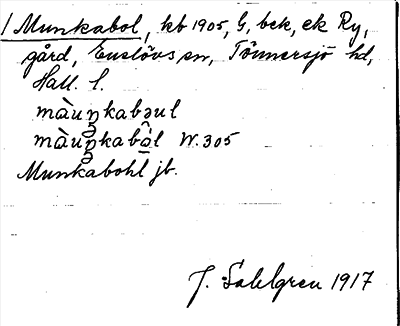 1 Munkabol, kb 1905, G, bek, ek Ry,
gård, Enslövs sn, Tönnersjö hd,
Hall. l.
màuŋkabəul
màuŋkabål W. 305
Munkabohl jb.
J. Sahlgren 1917